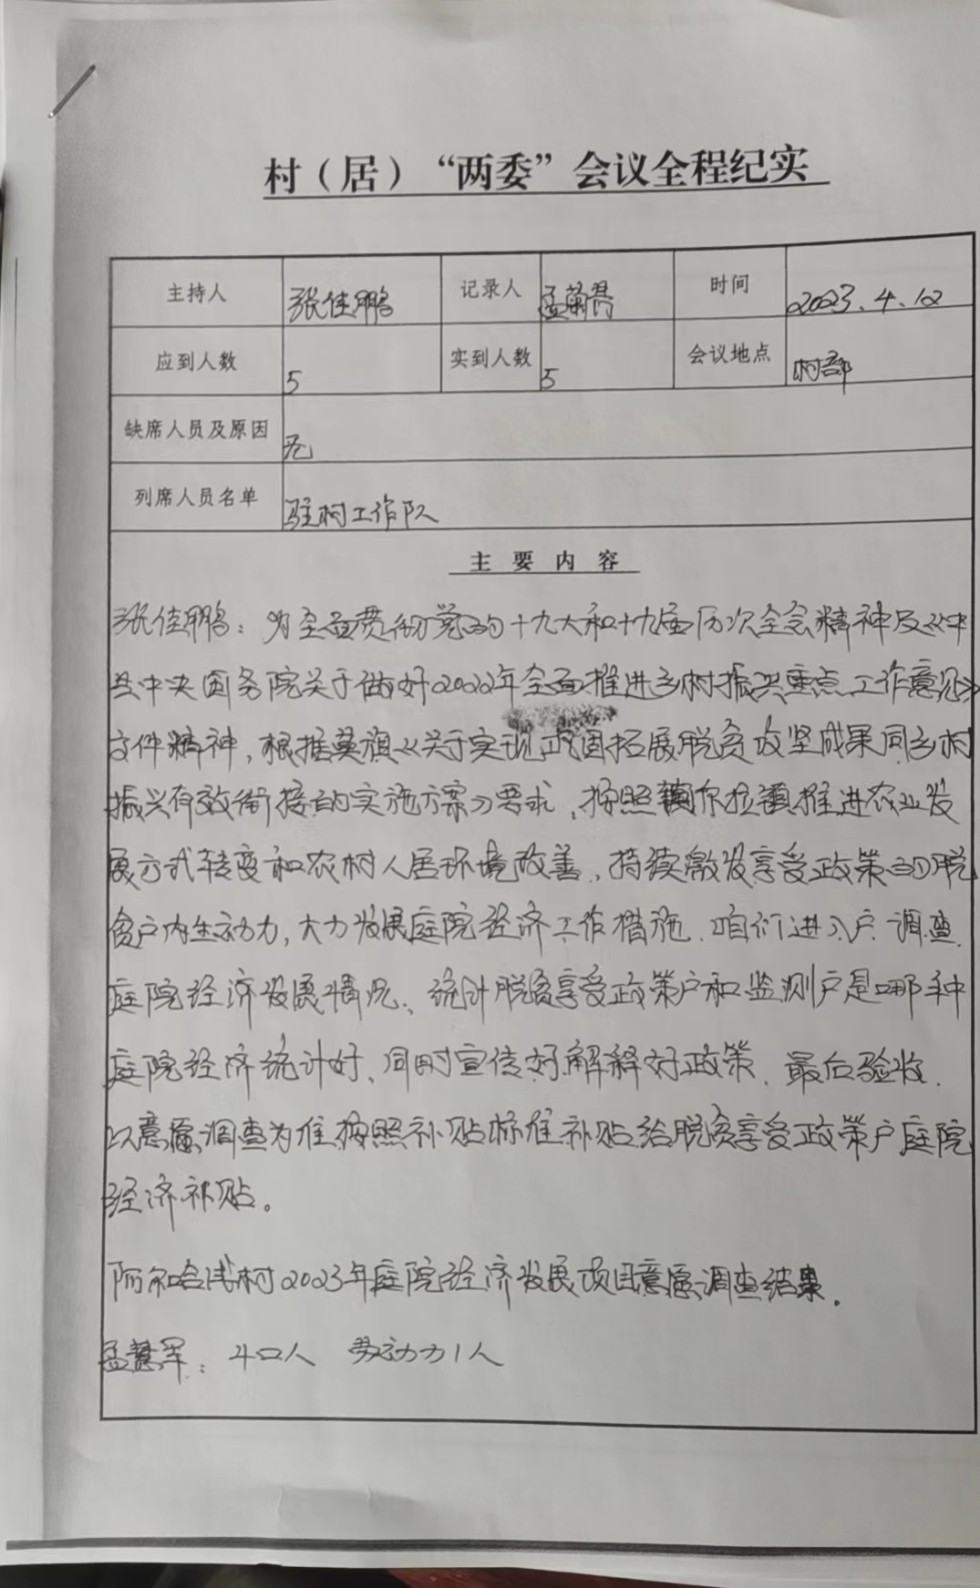 村（居）“两委”会议全程纪实
主持人 张佳鹏 记录人 孟 时间 2023.4.12
应到人数 5 实到人数 5 会议地点 村部
缺席人员及原因 无
列席人员名单 驻村工作队
主要内容
张佳鹏：为全面贯彻党的十九大和十九届历次全会精神及《中
共中央国务院关于做好2022年全面推进乡村振兴重点工作意见》
文件精神，根据莫旗《关于实现巩固拓展脱贫攻坚成果同乡村
振兴有效衔接的实施方案》要求，按照额尔拉镇推进农业发
展方式转变和农村人居环境改善，持续激发享受政策的脱
贫户内生动力，大力发展庭院经济工作措施．咱们进入户调查
庭院经济发展情况、统计脱贫享受政策户和监测户是哪种
庭院经济统计好、同时宣传好解释好政策．最后验收．
以意愿调查为准按照补贴标准补贴给脱贫享受政策户庭院
经济补贴。
阿尔哈浅村2023年庭院经济发展项目意愿调查结果．
孟慧军：4口人 劳动力1人